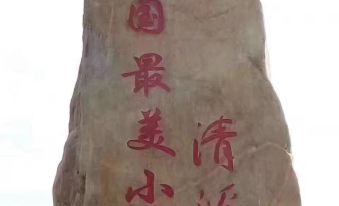 国最美小
清